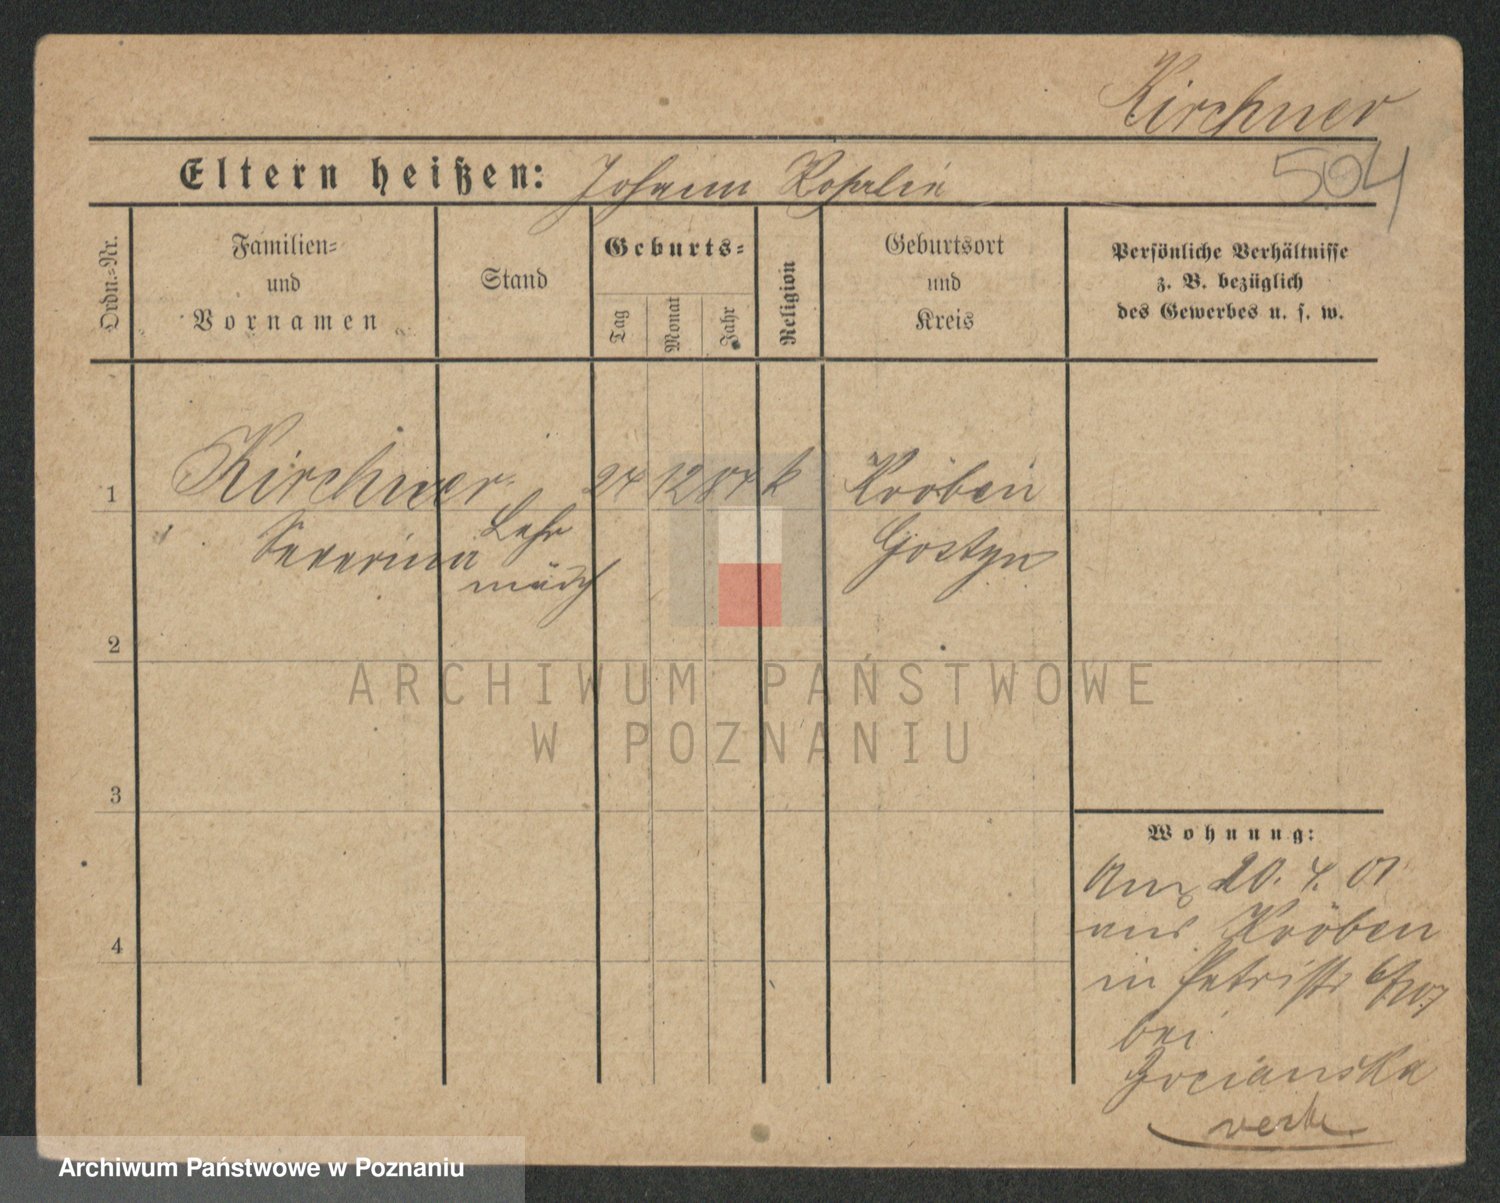 Kirchner
504
Eltern heißen: Johann Rosalie
Ordn.=Nr.
Familien=
und
Vornamen
Stand
Geburts=
Tag
Monat
Jahr
Religion
Geburtsort
und
Kreis
Persönliche Verhältnisse
z. B. bezüglich
des Gewerbes u. s. w.
1
Kirchner
24 12 84 k
Kröben
Severina
Lehr
mädch
Gostyn
2
3
4
ARCHIWUM PAŃSTWOWE
W POZNANIU
Wohnung:
20. 4. 01
aus Kröben
in Petristr
bei
Archiwum Państwowe w Poznaniu